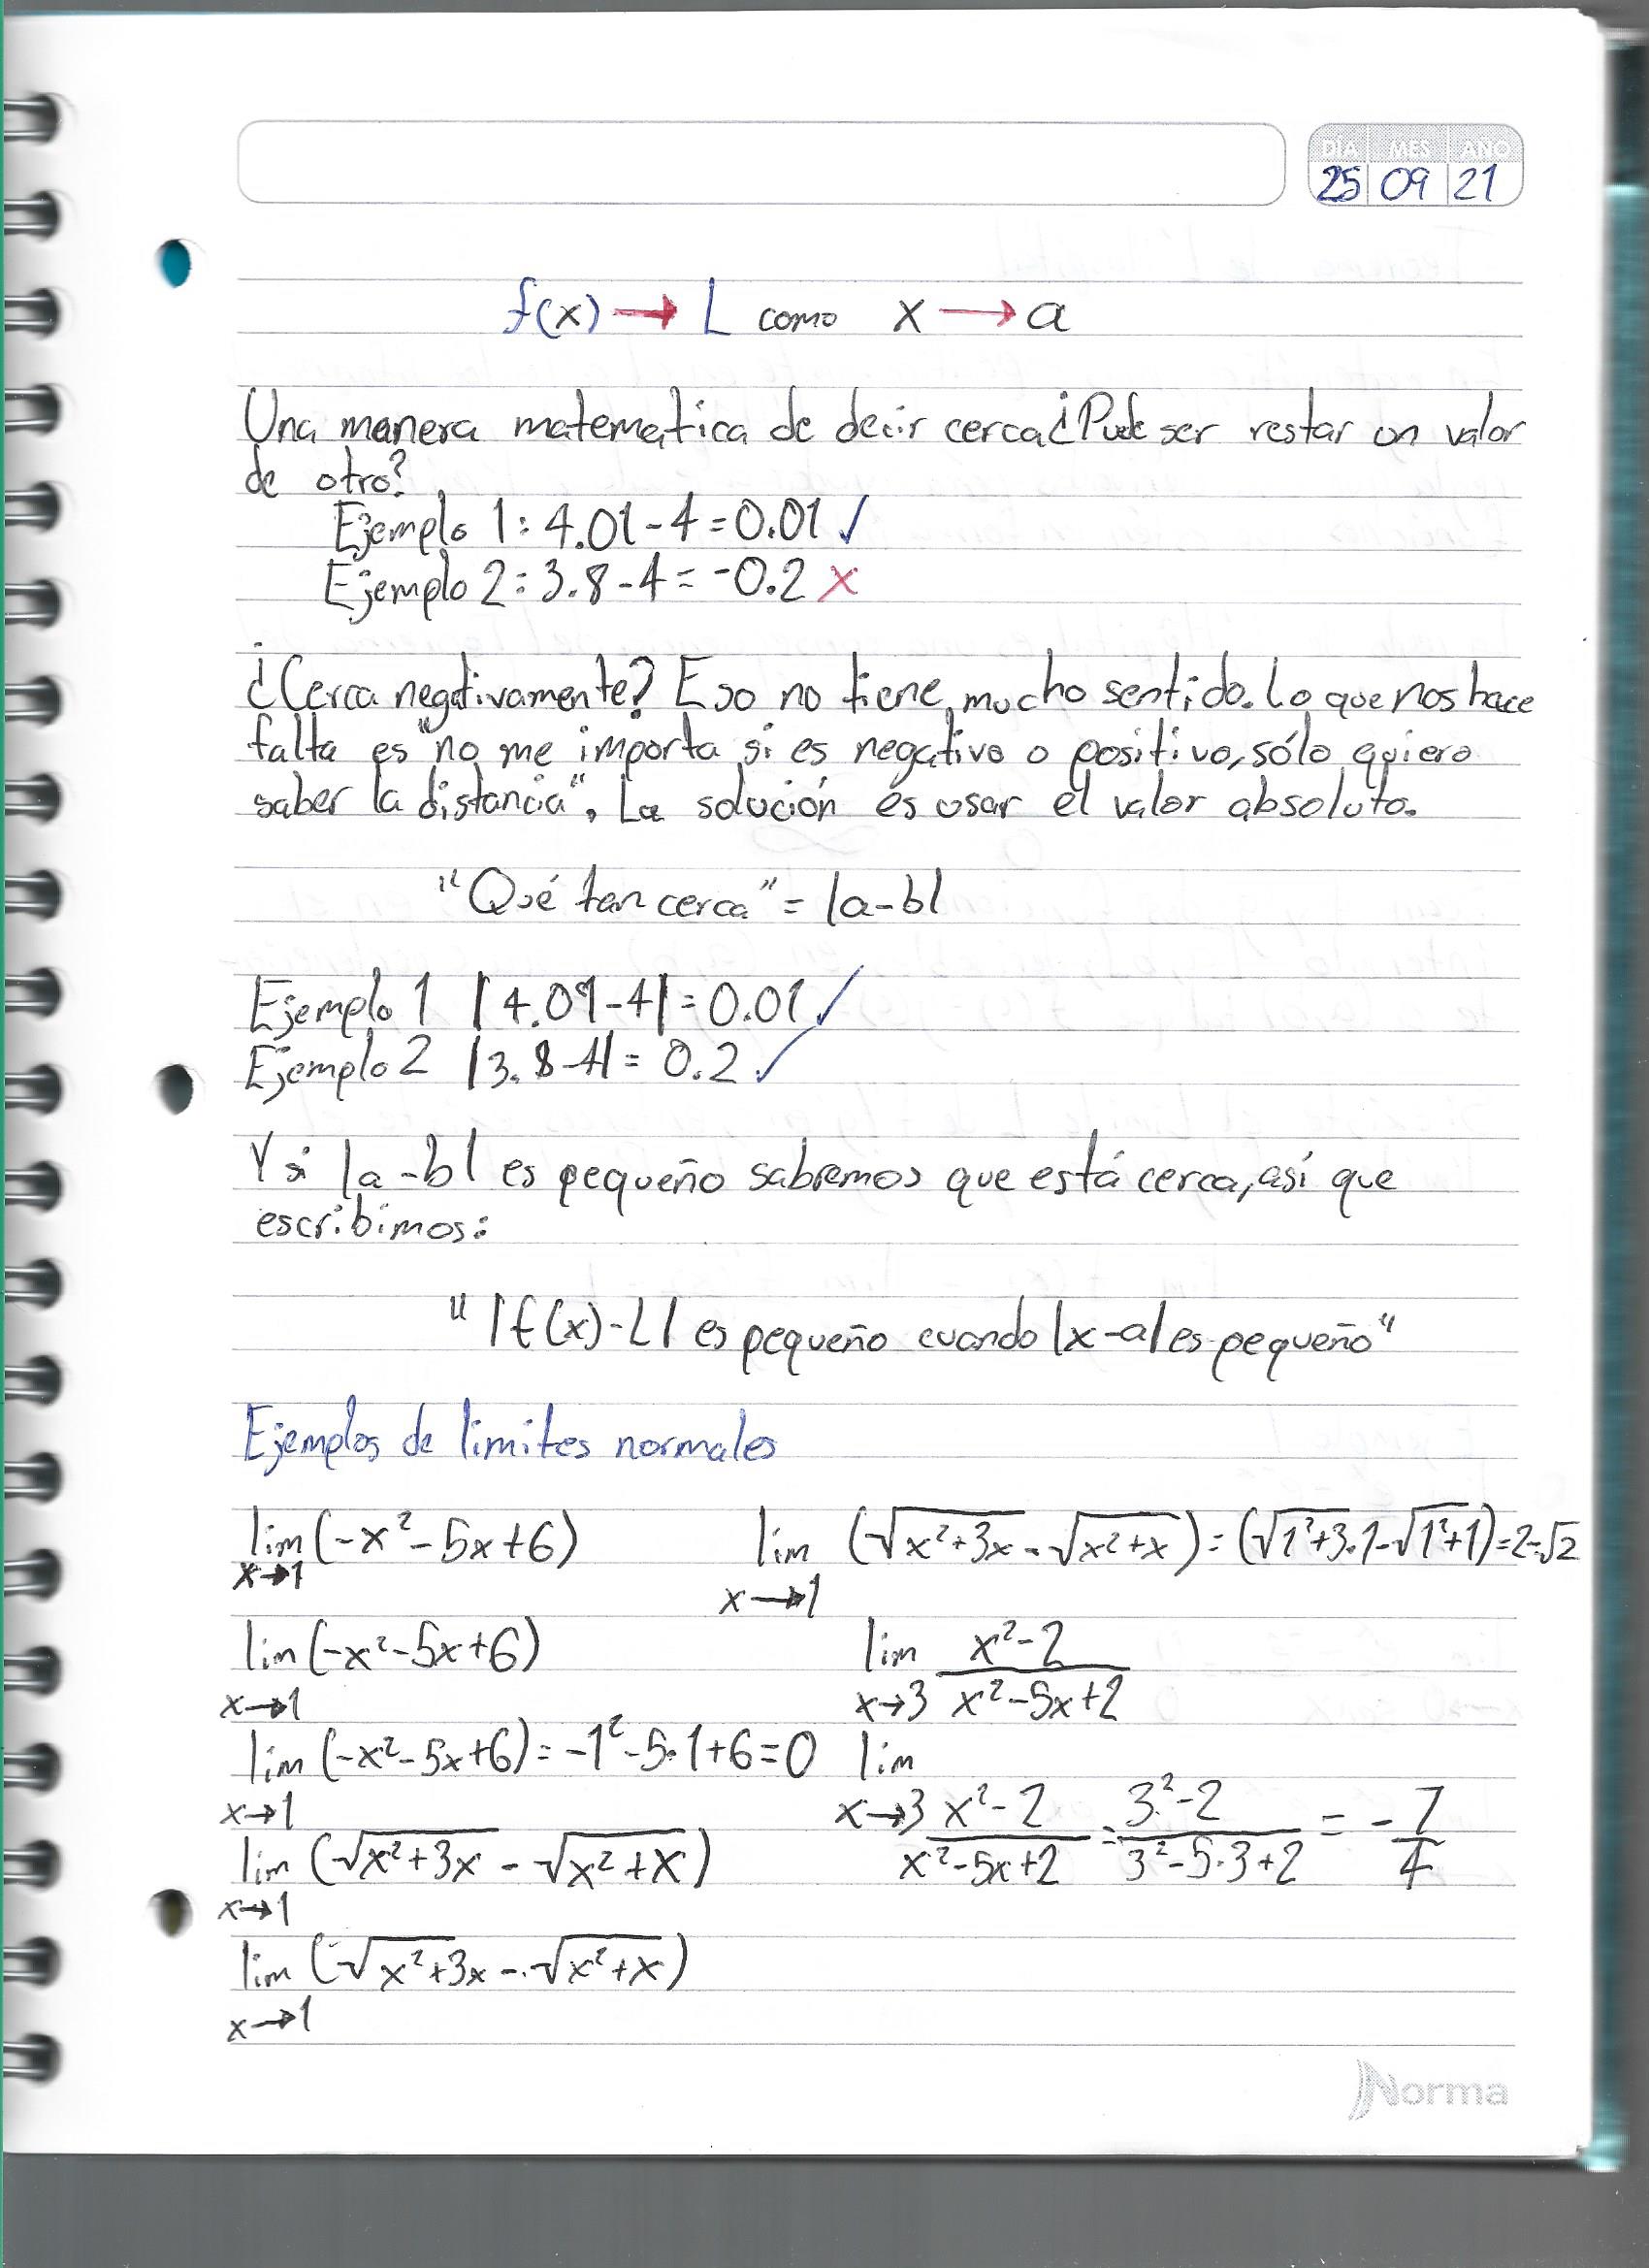 DÍA MES AÑO
25 09 21
f(x) → L como x → a
Una manera matematica de decir cerca ¿Puede ser restar un valor
de otro?
Ejemplo 1: 4.01-4=0.01 ✓
Ejemplo 2: 3.8-4=-0.2 x
¿Cerca negativamente? Eso no tiene mucho sentido. Lo que nos hace
falta es "no me importa si es negativo o positivo, sólo quiero
saber la distancia". La solución es usar el valor absoluto.
"Qué tan cerca" = |a-b|
Ejemplo 1 |4.01-4|=0.01 ✓
Ejemplo 2 |3.8-4|= 0.2 ✓
Y si |a-b| es pequeño sabremos que está cerca, así que
escribimos:
"|f(x)-L| es pequeño cuando |x-a| es pequeño"
Ejemplos de limites normales
lim (-x²-5x+6) lim (√x²+3x - √x²+x) = (√1²+3.1-√1²+1)=2-√2
x→1 x→1
lim (-x²-5x+6) lim x²-2
x→1 x→3 x²-5x+2
lim (-x²-5x+6) = -1²-5·1+6=0 lim
x→1 x→3 x²-2 = 3²-2 = - 7
lim (√x²+3x - √x²+x) x²-5x+2 3²-5·3+2 4
x→1
lim (√x²+3x - √x²+x)
x→1
Norma